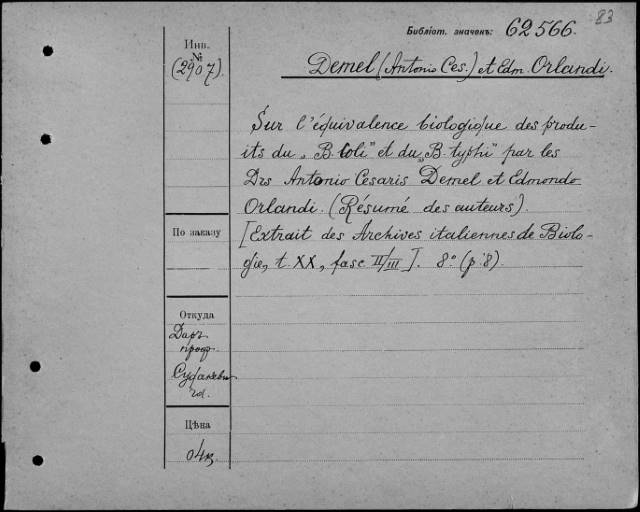 83
Библіот. значенъ: 62566.
Инв.
№
(2907).
Demel (Antonio Ces.) et Edm. Orlandi.
Sur l'équivalence biologique des produ-
its du „B. Coli" et du „B. typhi" par les
Drs Antonio Cesaris Demel et Edmondo
Orlandi. (Résumé des auteurs).
[Extrait des Archives italiennes de Biolo-
gie, t. XX, fasc II/III]. 8° (p. 8).
По заказу
Откуда
Даръ
проф.
Цѣна